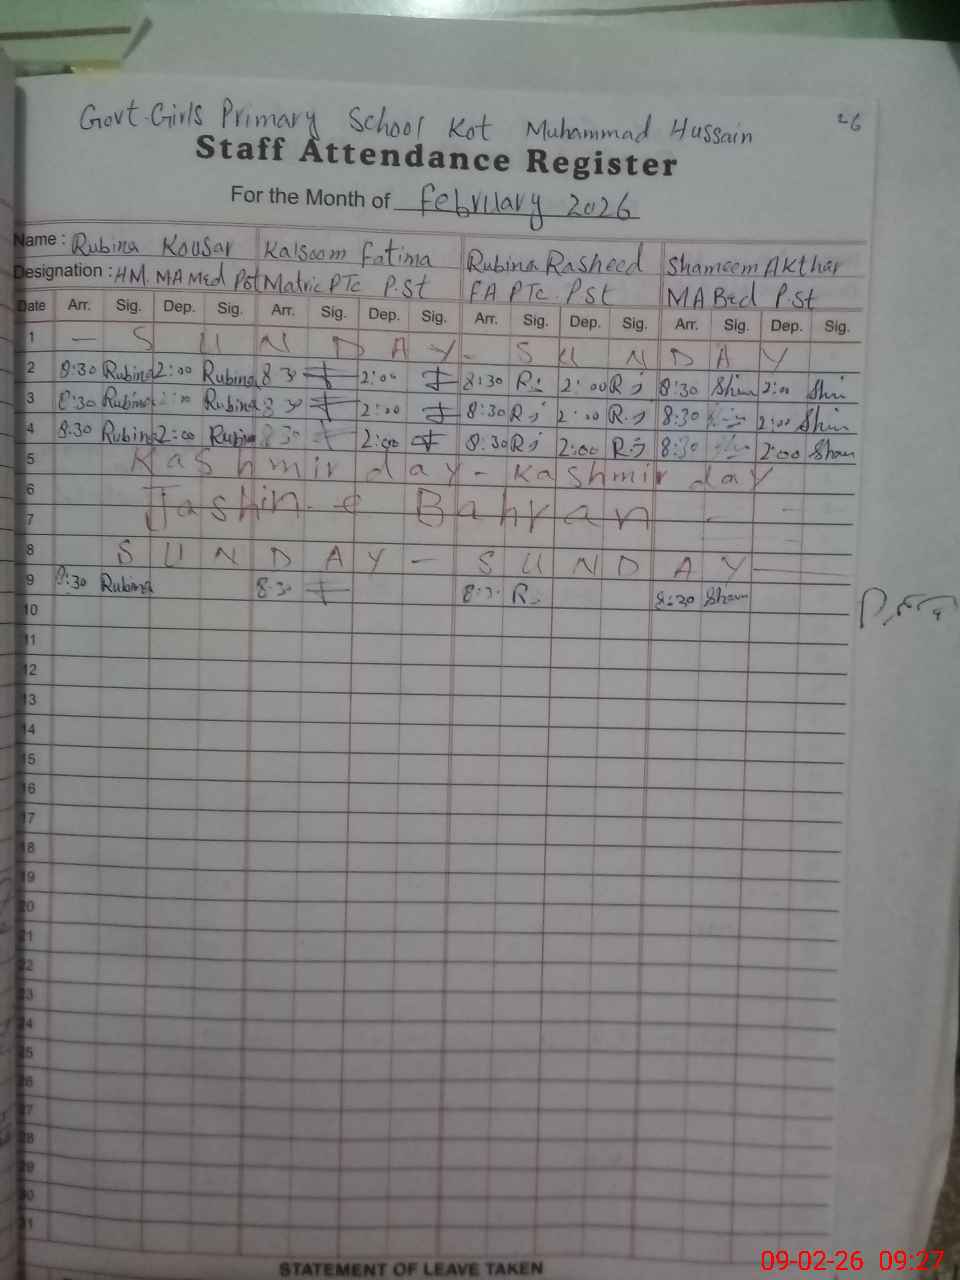 Govt. Girls Primary School Kot Muhammad Hussain 26
Staff Attendance Register
For the Month of February 2026
Name : Rubina Kousar Kalsoom Fatima Rubina Rasheed Shameem Akthar
Designation : HM. MA Med Pst Matric PTc P.St FA PTc. PSt MA Bed P.St
Date Arr. Sig. Dep. Sig. Arr. Sig. Dep. Sig. Arr. Sig. Dep. Sig. Arr. Sig. Dep. Sig.
1 — S U N D A Y - S U N D A Y
2 8:30 Rubina 2:00 Rubina 8 30 2:00 8:30 R 2:00 R 8:30 Shim 2:00 Shi
3 8:30 Rubina Rubina 8 30 2:00 8:30 R 2:00 R 8:30 2:00 Shim
4 8:30 Rubina 2:00 Rubina 8 30 2:00 8:30 R 2:00 R 8:30 2:00 Sham
5 Kashmir day - Kashmir day
6 Jashin-e Bahran
7
8 S U N D A Y — S U N D A Y
9 8:30 Rubina 8:30 8:30 R 8:30 Sham
10
11
12
13
14
15
16
17
18
19
20
21
22
23
24
25
26
27
28
29
30
31
STATEMENT OF LEAVE TAKEN
09-02-26 09:27